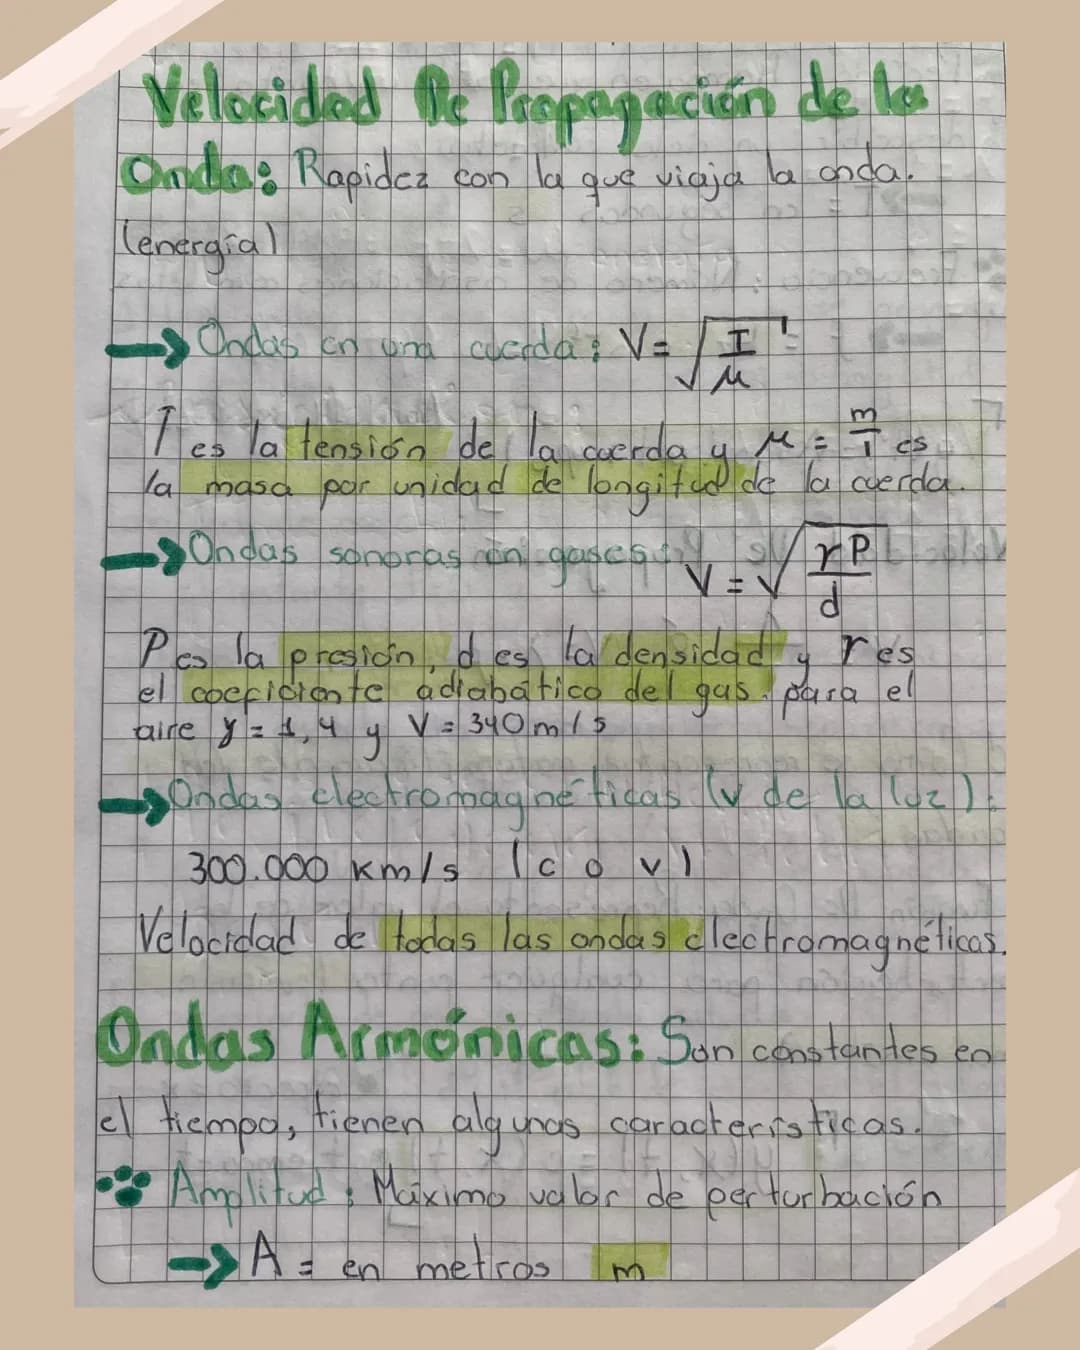 Velocidad De Propagación de la
Onda: Rapidez con la que viaja la onda.
(energía)
→ Ondas en una cuerda: V = √T/μ
T es la tensión de la cuerda y μ = m/l es
la masa por unidad de longitud de la cuerda.
→ Ondas sonoras en gases: V = √γP/d
P es la presión, d es la densidad y γ es
el coeficiente adiabático del gas. para el
aire γ = 1,4 y V = 340 m/s
→ Ondas electromagnéticas (v de la luz):
300.000 km/s (c o v)
Velocidad de todas las ondas electromagnéticas.
Ondas Armónicas: Son constantes en
el tiempo, tienen algunas características.
Amplitud: Máximo valor de perturbación
→ A = en metros m